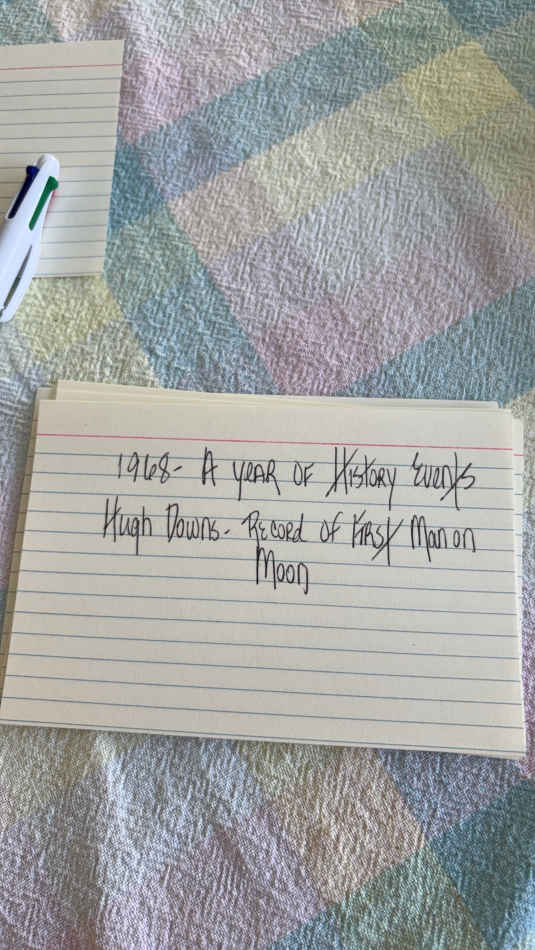 1968- A YEAR OF HISTORY EVENTS
HUGH DOWNS- RECORD OF FIRST MAN ON
MOON